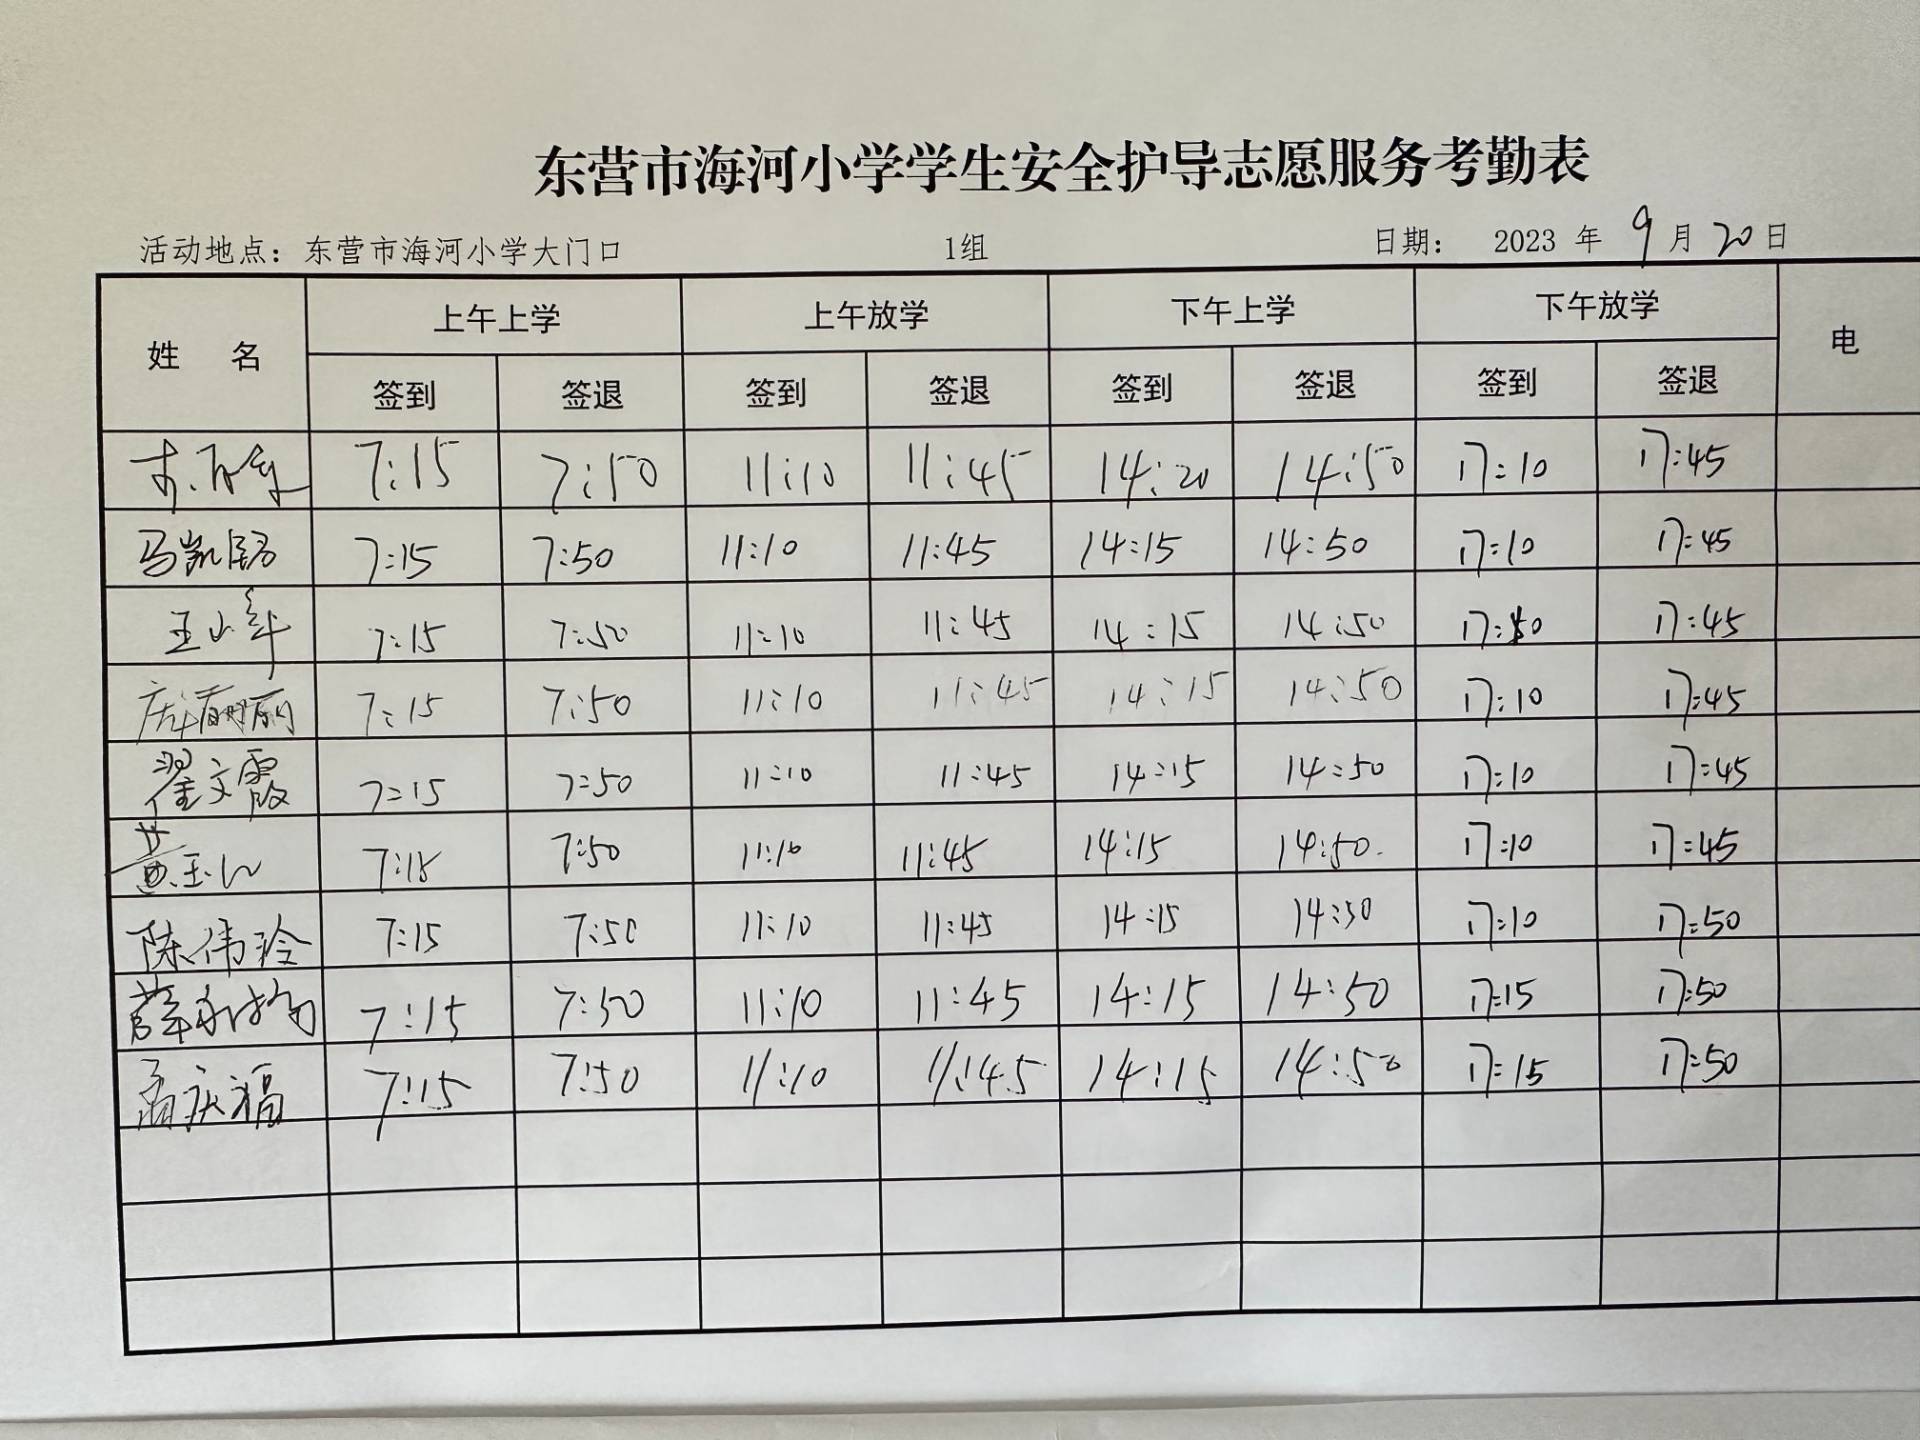 东营市海河小学学生安全护导志愿服务考勤表
活动地点：东营市海河小学大门口 1组 日期： 2023 年 9 月 20 日
姓 名 上午上学 上午放学 下午上学 下午放学 电
签到 签退 签到 签退 签到 签退 签到 签退
7:15 7:50 11:10 11:45 14:20 14:50 17:10 17:45
马凯 7:15 7:50 11:10 11:45 14:15 14:50 17:10 17:45
王 7:15 7:50 11:10 11:45 14:15 14:50 17:45
丽 7:15 7:50 11:10 11:45 14:15 14:50 17:10 17:45
翟文霞 7:15 7:50 11:10 11:45 14:15 14:50 17:10 17:45
黄玉 7:15 7:50 11:10 11:45 14:15 14:50 17:10 17:45
陈伟玲 7:15 7:50 11:10 11:45 14:15 14:50 17:10 17:50
薛 7:15 7:50 11:10 11:45 14:15 14:50 17:15 17:50
孟庆福 7:15 7:50 11:10 11:45 14:15 14:50 17:15 17:50